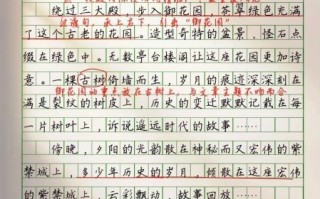 绕过三大殿，步入御花园，苍翠绿色充满
过渡句，承上启下，引出“御花园”
了这个古老的花园。造型奇特的盆景、怪石点
缀在绿色中。无数亭台楼阁让这座花园更加诗
意。一棵古树倚墙而生，岁月的痕迹深深刻在
御花园的重点放在古树上，与文章主题不吻合
满是裂纹的树皮上，历史的变迁默默记载在每
一片树叶上，诉说遥远时代的故事……
傍晚，夕阳的光韵散在神秘而又宏伟的紫
禁城上，多少年历史的岁月，倾数在这座宏伟
的紫禁城上，云彩飘动，故事回放……